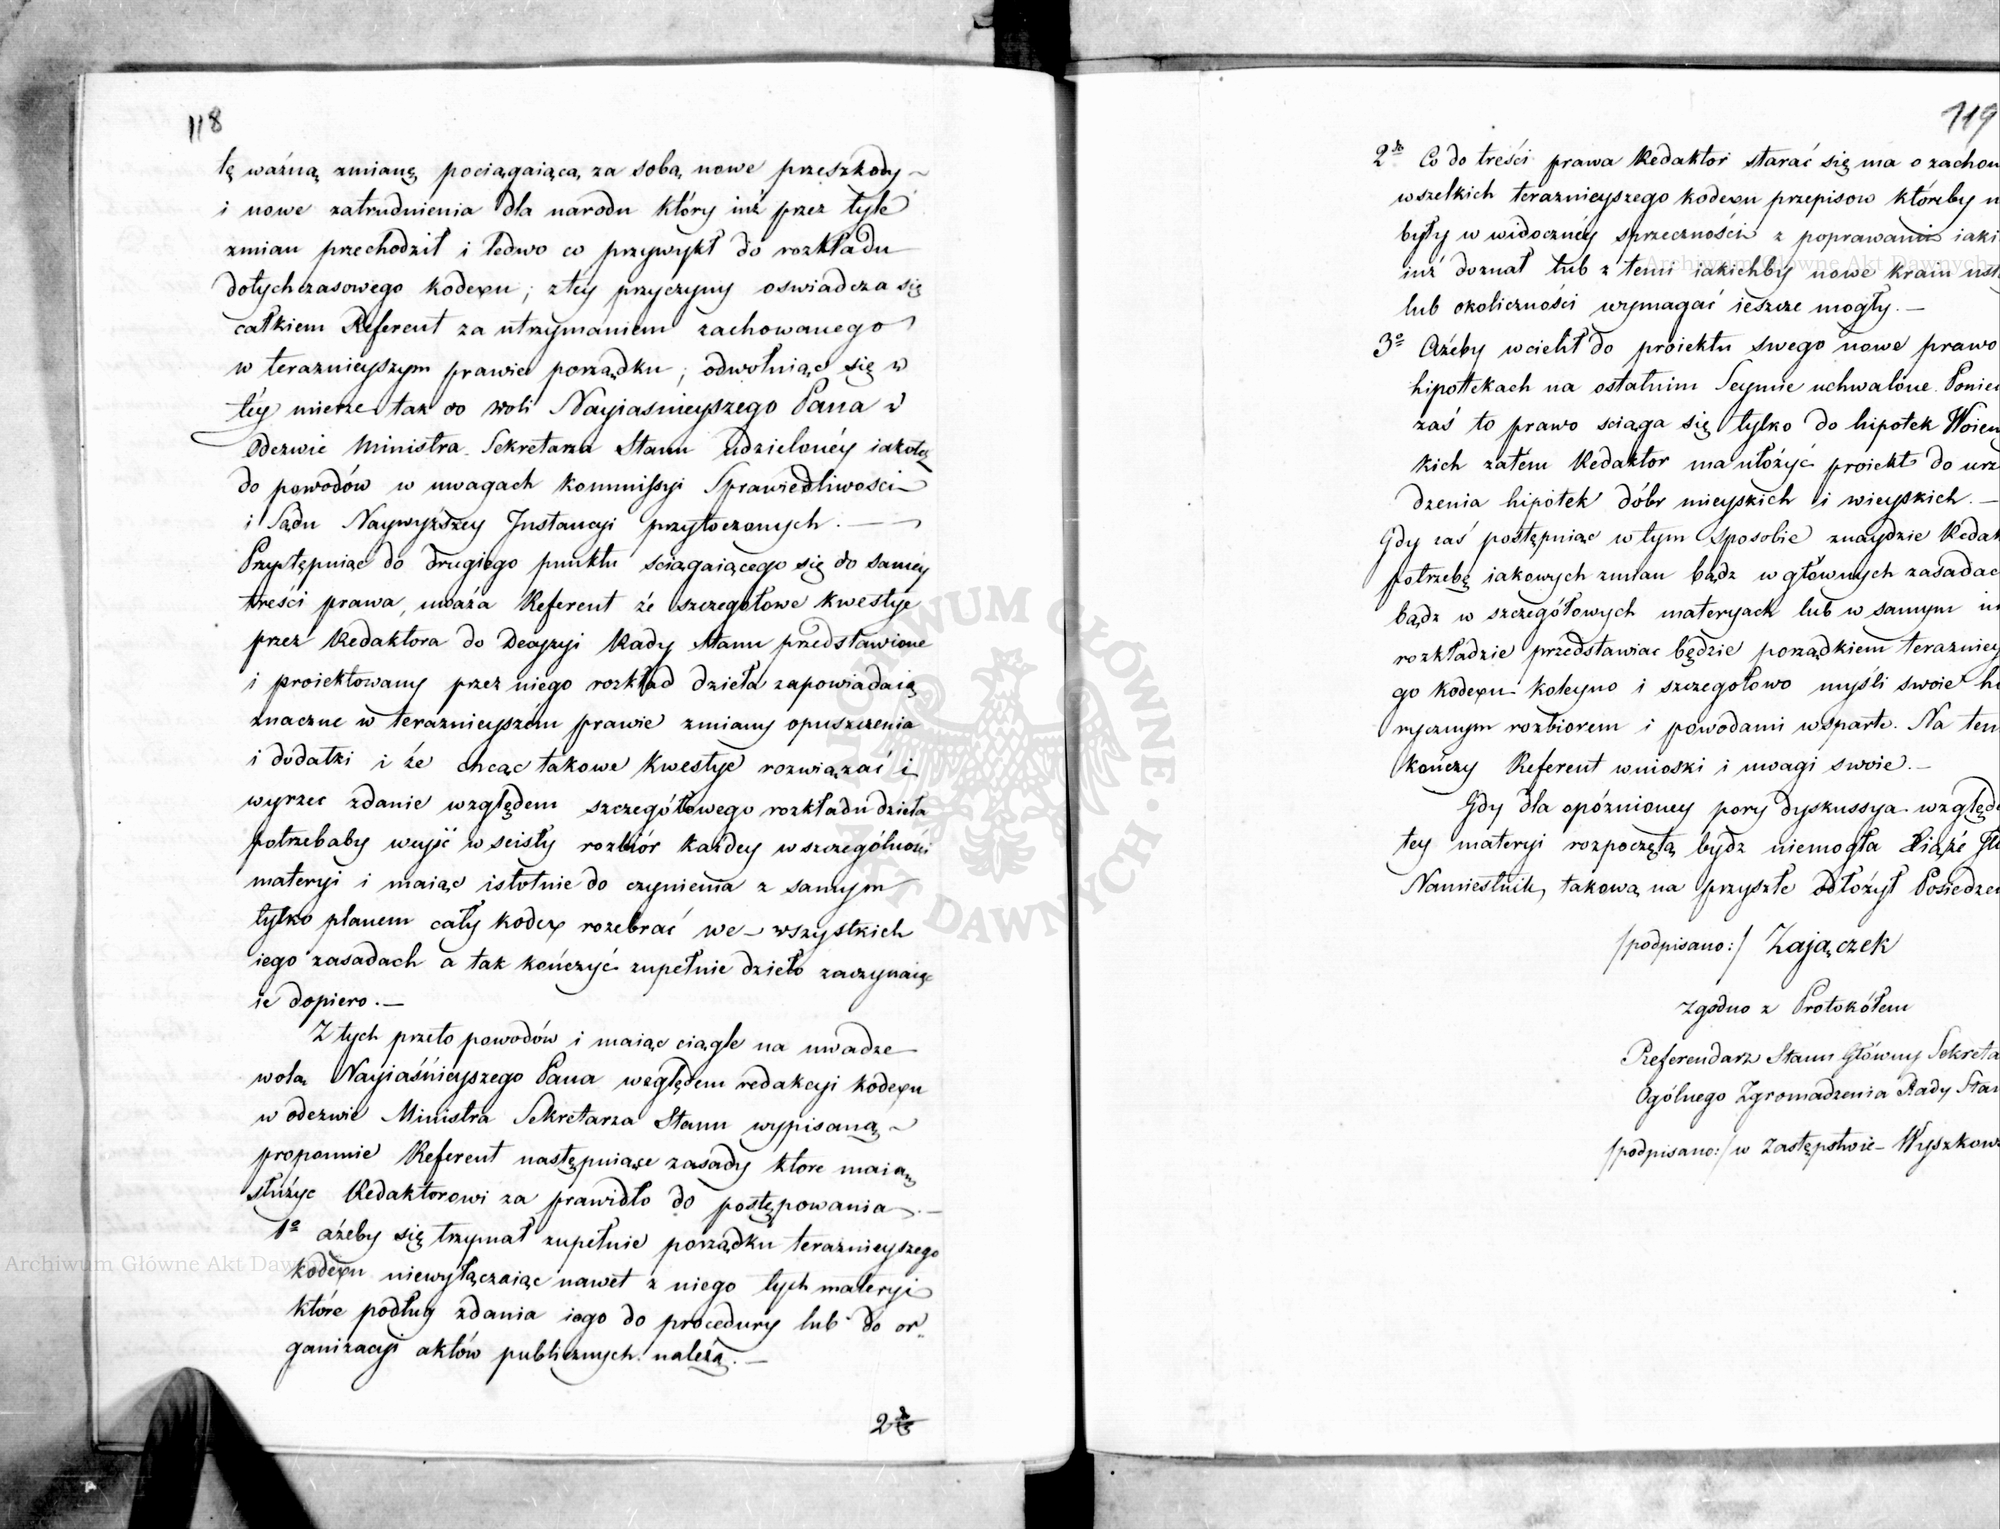 118
tę ważną zmianę pociągaiącą za sobą nowe przeszkody
i nowe zatrudnienia dla narodu który iuż przez tyle
zmian przechodził i ledwo co przywykł do rozkładu
dotychczasowego kodexu; z tey przyczyny oswiadcza się
całkiem Referent za utrzymaniem zachowanego
w teraznieyszym prawie porządku; odwołuiąc się w
téy mierze tak do woli Nayiasnieyszego Pana w
Odezwie Ministra Sekretarza Stanu udzielonéy iakoteż
do powodów w uwagach Kommissyi Sprawiedliwości
i Sądu Naywyższey Instancyi przytoczonych. —
Przystępuiąc do drugiego punktu sciągaiącego się do saméy
treści prawa, uważa Referent że szczegołowe kwestye
przez Redaktora do Decyzyi Rady Stanu przedstawione
i proiektowany przez niego rozkład dzieła zapowiadaią
znaczne w teraznieyszém prawie zmiany opuszczenia
i dodatki i że chcąc takowe kwestye rozwiązać i
wyrzec zdanie względem szczegółowego rozkładu dzieła
potrzebaby weyść w scisły rozbiór każdey w szczególności
materyi i maiąc istotnie do czynienia z samym
tylko planem cały kodex rozebrać we wszystkich
iego zasadach a tak kończyć zupełnie dzieło zaczynaiąc
ie dopiero. —
Z tych przeto powodów i maiąc ciągle na uwadze
wolą Nayiaśnieyszego Pana względem redakcyi kodexu
w odezwie Ministra Sekretarza Stanu wypisaną
proponuie Referent następuiące zasady które maią
służyc Redaktorowi za prawidło do postępowania. —
1º ażeby się trzymał zupełnie porządku teraznieyszego
kodexu niewyłączaiąc nawet z niego tych materyi
które podług zdania iego do procedury lub do or-
ganizacyi aktów publicznych należą. —
119
2º Co do treści prawa Redaktor starać się ma o zachow
wszelkich teraznieyszego kodexu przepisow któreby n
były w widocznéy sprzeczności z poprawami iaki
iuż doznał lub z temi iakichby nowe kraiu ust
lub okoliczności wymagać ieszcze mogły. —
3º Ażeby wcielił do proiektu swego nowe prawo
hipotekach na ostatnim Seymie uchwalone. Poniew
zaś to prawo sciąga się tylko do hipotek Woiew
kich zatem Redaktor ma ułożyć proiekt do urz
dzenia hipotek dóbr mieyskich i wieyskich. —
Gdy zaś postępuiąc w tym sposobie znaydzie Redak
potrzebę iakowych zmian bądz w głównych zasadac
bądz w szczegółowych materyach lub w samym
rozkładzie przedstawiac będzie porządkiem terazniey
go kodexu koleyno i szczegołowo myśli swoie hi
rycznym rozbiorem i powodami wsparte. Na tem
kończy Referent wnioski i uwagi swoie. —
Gdy dla opóznioney pory dyskussya względe
tey materyi rozpoczętą bydz niemogła Xiąże
Namiestnik, takową na przyszłe odłożył Posiedze
/podpisano:/ Zajączek
Zgodno z Protokółem
Referendarz Stanu Główny Sekreta
Ogólnego Zgromadzenia Rady Stan
/podpisano:/ w Zastępstwie – Wyszkows
ARCHIWUM GŁÓWNE AKT DAWNYCH
Archiwum Główne Akt Dawnych
Archiwum Główne Akt Dawnych